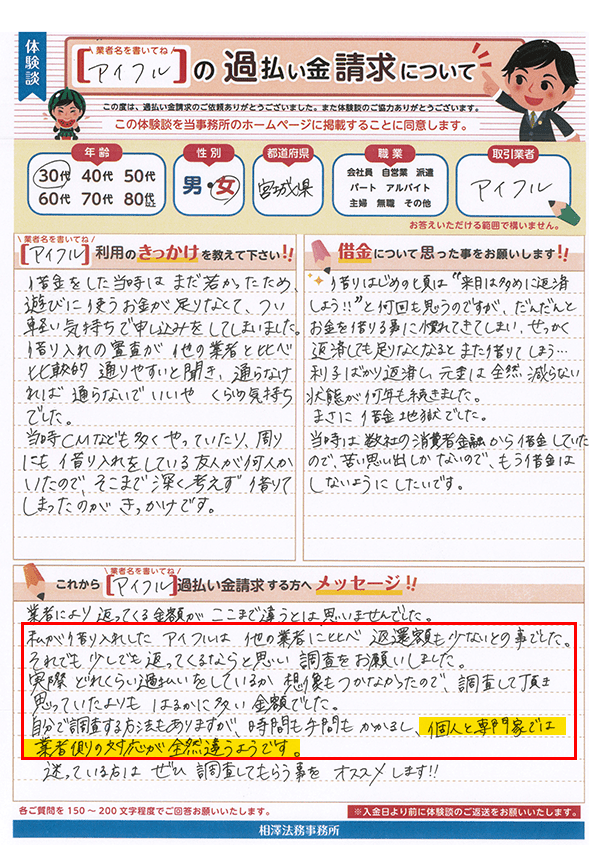 体験談
業者名を書いてね
[アイフル]の過払い金請求について
この度は、過払い金請求のご依頼ありがとうございました。また体験談のご協力ありがとうございます。
この体験談を当事務所のホームページに掲載することに同意します。
年齢
30代 40代 50代
60代 70代 80代以上
性別
男・女
都道府県
宮城県
職業
会社員 自営業 派遣
パート アルバイト
主婦 無職 その他
取引業者
アイフル
お答えいただける範囲で構いません。
業者名を書いてね
[アイフル]利用のきっかけを教えて下さい!!
借金をした当時は まだ若かったため、
遊びに使うお金が足りなくて、つい
軽い気持ちで申し込みをしてしまいました。
借り入れの審査が他の業者と比べ
比較的 通りやすいと聞き、通らなけ
れば 通らないでいいや くらの気持ち
でした。
当時CMなども多くやっていたり、周り
にも 借り入れをしている友人が何人か
いたので、そこまで深く考えず借りて
しまったのが きっかけです。
借金について思った事をお願いします!!
借りはじめの頃は“来月は多めに返済
しよう!!”と何回も思うのですが、だんだんと
お金を借りる事に慣れてきてしまい、せっかく
返済しても足りなくなると また借りてしまう…
利子ばかり返済し、元金は全然 減らない
状態が何年も続きました。
まさに 借金地獄でした。
当時は 数社の消費者金融から借金していた
ので、苦い思い出しかないので、もう借金は
しないようにしたいです。
業者名を書いてね
これから[アイフル]過払い金請求する方へメッセージ!!
業者により 返ってくる金額が ここまで違うとは思いませんでした。
私が借り入れした アイフルは 他の業者に比べ 返還額も少ないとの事でした。
それでも 少しでも返ってくるならと思い 調査をお願いしました。
実際 どれくらい過払いをしているか 想像もつかなかったので、調査して頂き
思っていたよりも はるかに多い金額でした。
自分で調査する方法もありますが、時間も手間も かかるし、個人と専門家では
業者側の対応が全然違うようです。
迷っている方は ぜひ 調査してもらう事を オススメします!!
各ご質問を150～200文字程度でご回答お願いいたします。
※入金日より前に体験談のご返送をお願いいたします。
相澤法務事務所